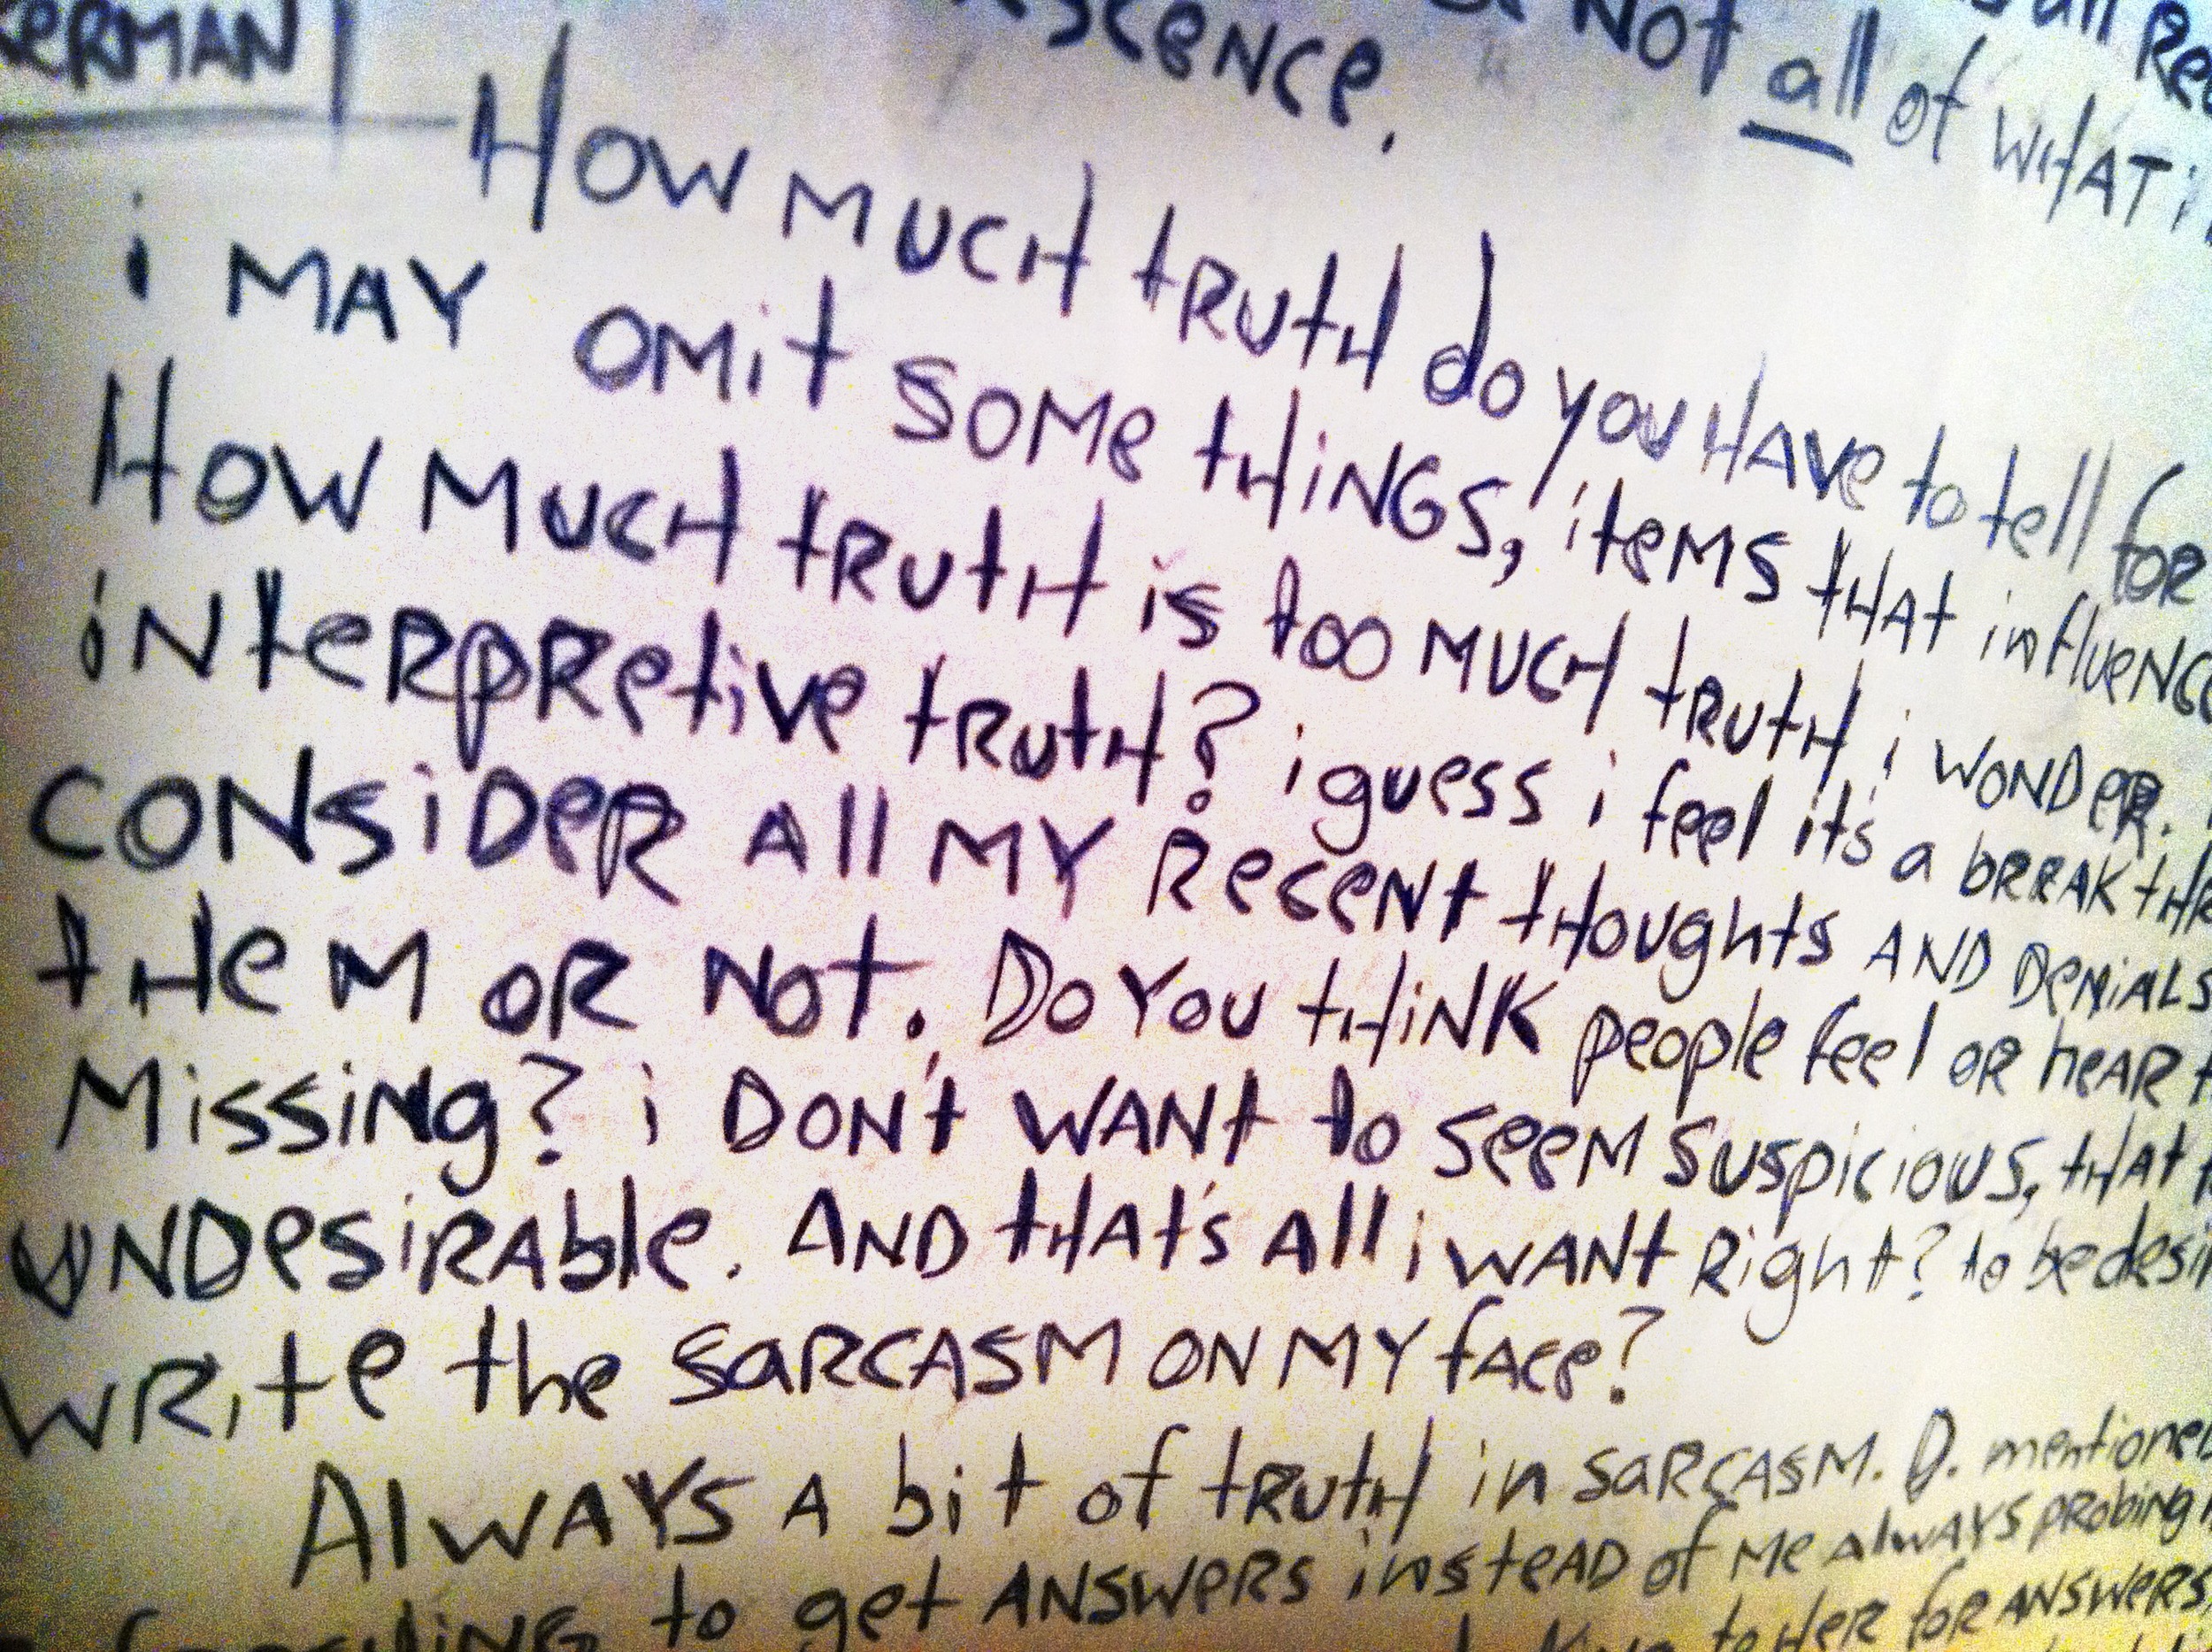 all Re
scence. Not all of WHAT i
ERMAN
How much truth do you HAVE to tell for
i MAY omit some things, items that influenc
How much truth is too much truth i wonder.
interpretive truth? i guess i feel it's a break thr
consider all my recent thoughts and denials
them or not. Do you think people feel or hear t
Missing? i don't want to seem suspicious, that
undesirable. And that's all i want right? to be desir
write the sarcasm on my face?
Always a bit of truth in sarcasm. D. mentioned
to get answers instead of me always probing
to her for answers,